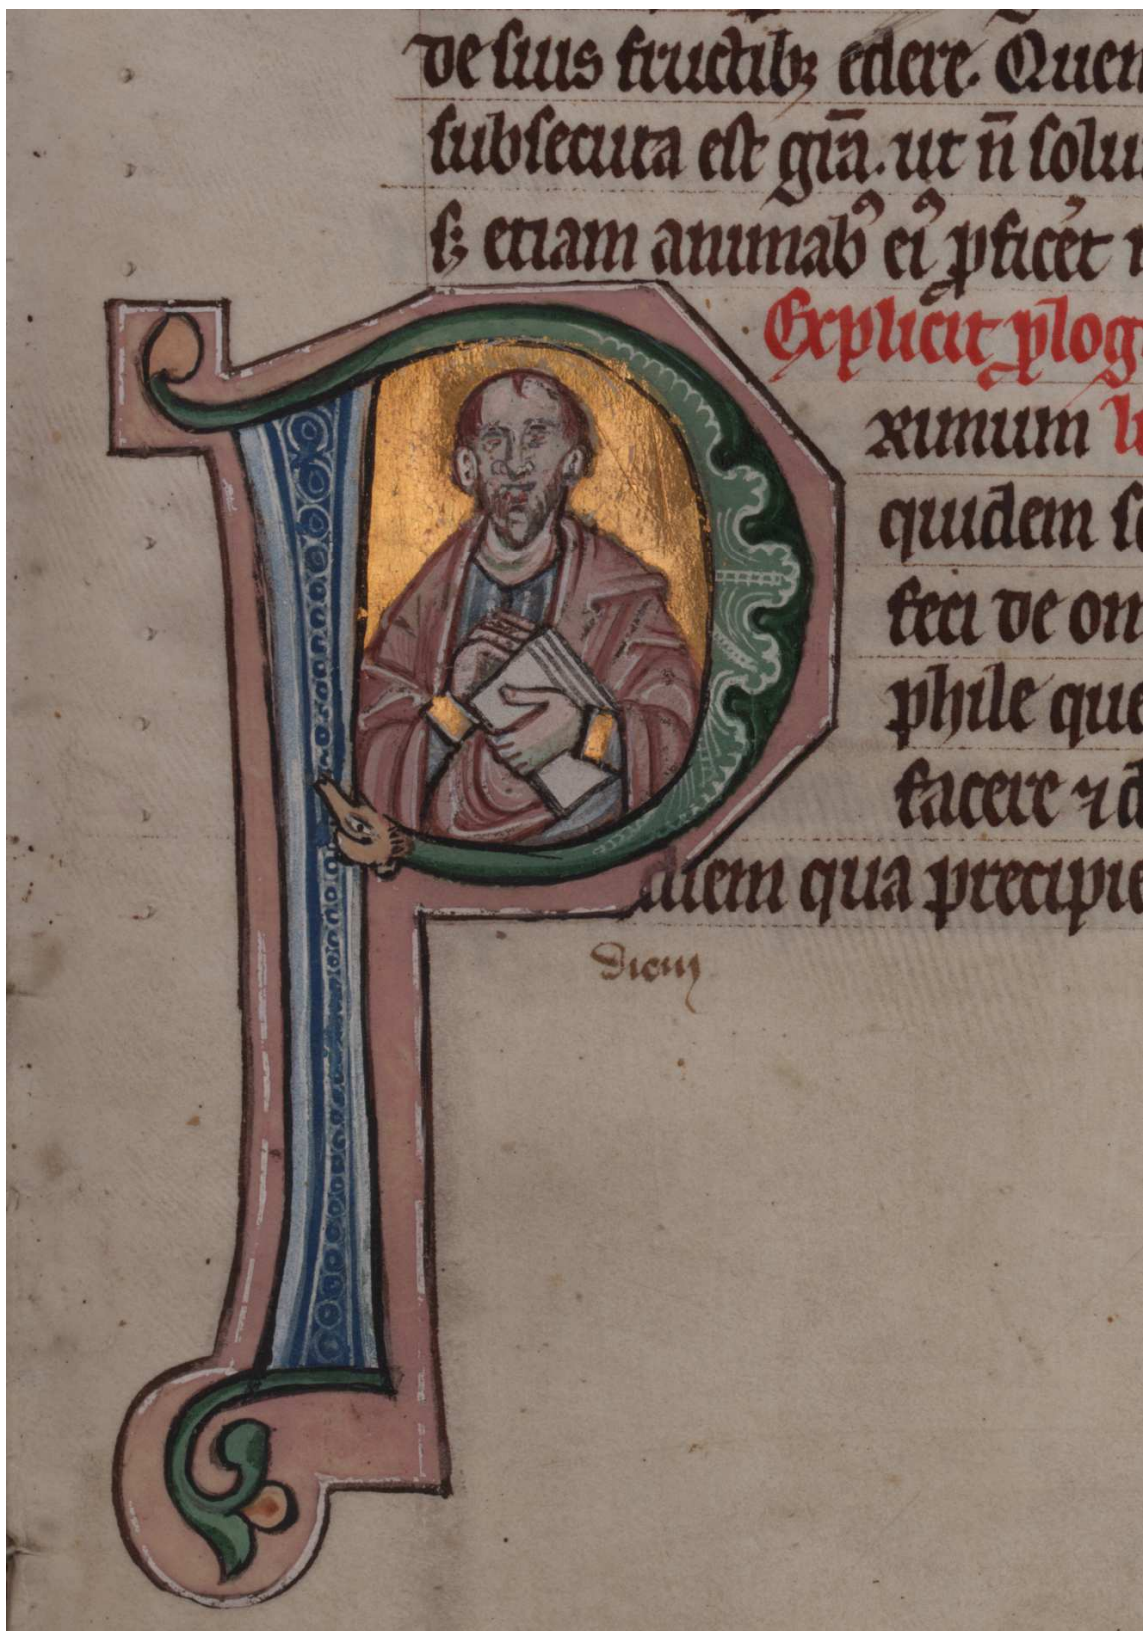 de suis fructib; edere. Quen
subsecuta est gr̄a. ut n̄ solu
s; etiam animab⁹ ei⁹ ꝓficēt
Explicit ꝓlog
P
rimum li
quidem s
feci de om
phile que
facere ⁊ d
diem qua precipie
diem